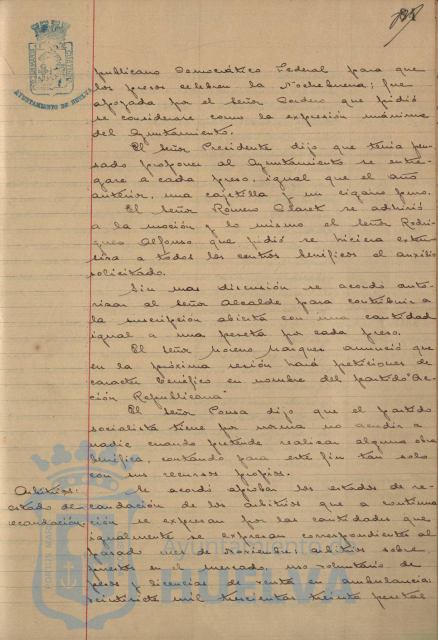 publicano Democrático Federal para que
los presos celebren la Nochebuena; fue
apoyada por el Señor Cordero que pidió
se considerase como la expresión unánime
del Ayuntamiento.
El Señor Presidente dijo que tenía pen-
sado proponer al Ayuntamiento se entre-
gare a cada preso, igual que el año
anterior, una cajetilla y un cigarro puro.
El Señor Romero Claret se adhirió
a la moción y lo mismo el Señor Rodrí-
guez Alfonso que pidió se hiciera exten-
siva a todos los centros benéficos el auxilio
solicitado.
Sin mas discusión se acordó auto-
rizar al Señor Alcalde para contribuir a
la suscripción abierta con una cantidad
igual a una peseta por cada preso.
El Señor Moreno Marquez anunció que
en la próxima sesión hará peticiones de
caracter benéfico en nombre del partido "Ac-
ción Republicana"
El Señor Ponsa dijo que el partido
socialista tiene por norma no acudir a
nadie cuando pretende realizar alguna obra
benéfica, contando para este fin tan solo
con sus recursos propios.
Arbitrios:
estado de
recaudación.
Se acordó aprobar los estados de re-
caudación de los arbitrios que a continua-
ción se expresan por las cantidades que
igualmente se expresan correspondientes al
pasado mes de Noviembre: arbitrios sobre
puestos en el mercado, uso voluntario de
pesas y licencias de venta en ambulancia:
veintiocho mil trescientas treinta pesetas
AYUNTAMIENTO DE HUELVA
Ayuntamiento de
HUELVA